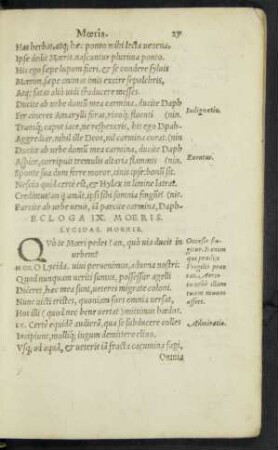 Mœris. 27
Has herbas, atq; hæc ponto mihi lecta uenena,
Ipse dedit Mœris. nascuntur plurima ponto.
His ego sæpe lupum fieri, & se condere syluis
Mœrim, sæpe animas imis excire sepulchris,
Atq; satas aliò uidi traducere messes.
Ducite ab urbe domū mea carmina, ducite Daph
Fer cineres Amarylli foras, riuoq; fluenti (nin.
Indignatio.
Transq; caput iace, ne respexeris, his ego Daph-
Aggrediar, nihil ille Deos, nil carmina curat. (nin
Ducite ab urbe domū mea carmina, ducite Daph
Aspice, corripuit tremulis altaria flammis (nin.
Euentus.
Sponte sua dum ferre moror, cinis ipse: bonū sit.
Nescio quid certè est, & Hylax in limine latrat.
Credimus? an q amāt, ipsi sibi somnia fingūt? (nin.
Parcite ab urbe uenit, iā parcite carmina, Daph-
ECLOGA IX. MOERIS.
LYCIDAS. MOERIS.
QVò te Mœri pedes? an, quò uia ducit in
urbem?
MOE. O Lycida. uiui peruenimus, aduena nostri
Quod nunquam ueriti sumus, possessor agelli
Diceret, hæc mea sunt, ueteres migrate coloni.
Nunc uicti tristes, quoniam fors omnia uersat,
Hos illi (quod nec bene uertat) mittimus hœdos.
LY. Certè equidē audierā, qua se subducere colles
Admiratio.
Incipiunt, molliq; iugum demittere cliuo,
Vsq; ad aquā, & ueteris iā fracta cacumina fagi,
Omnia